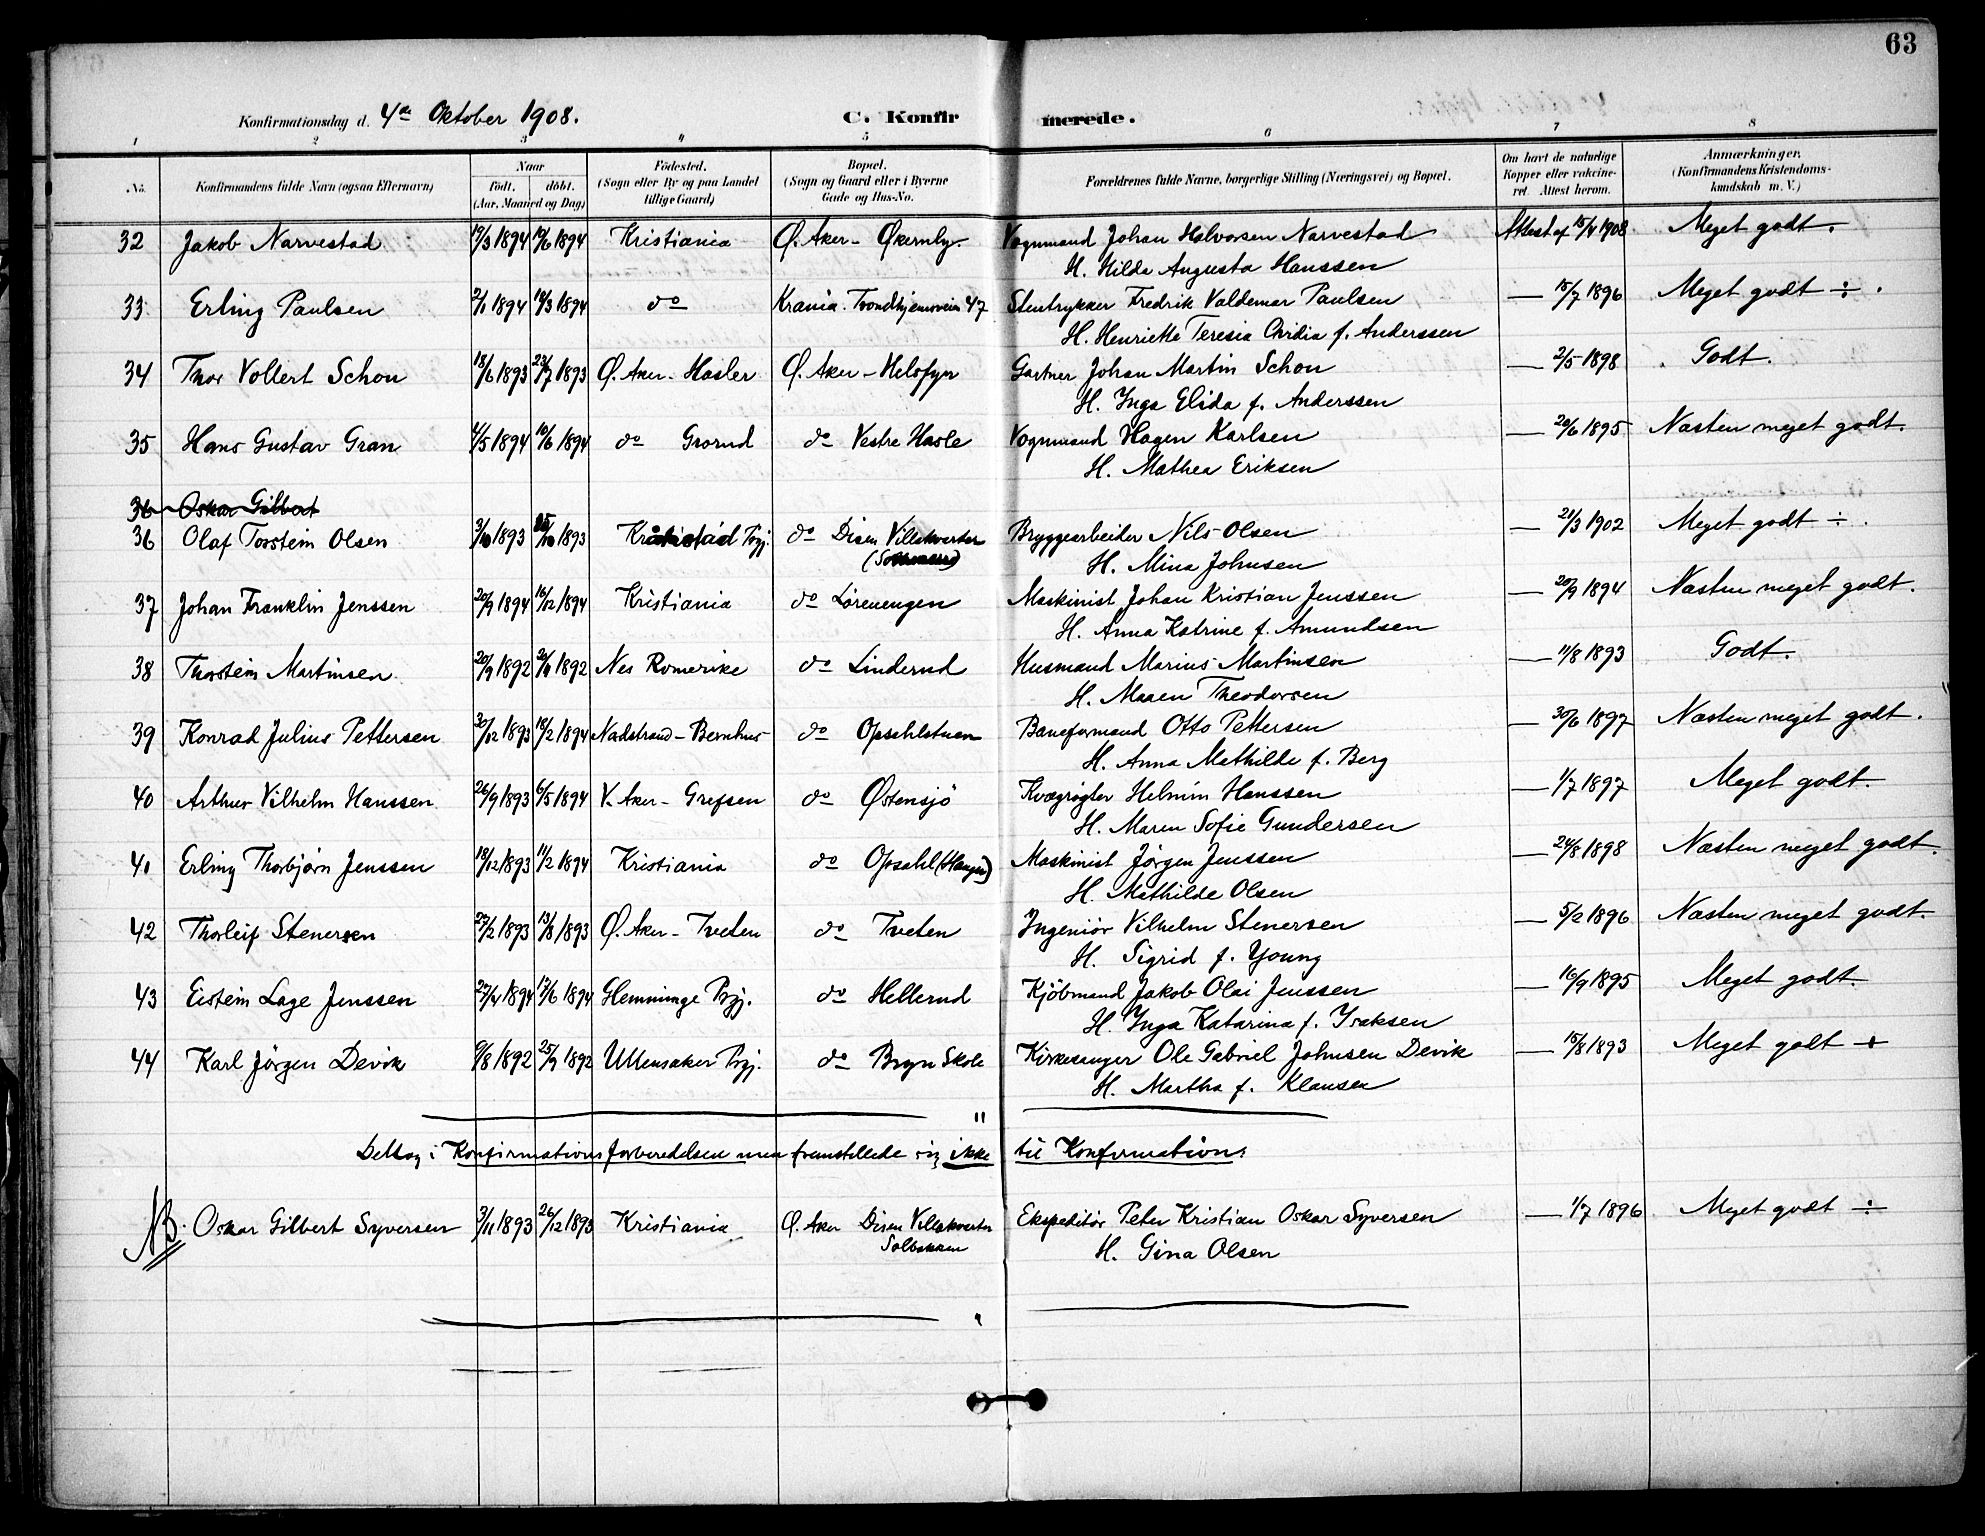 63
Konfirmationsdag d. 4de Oktober 1908. C. Konfirmerede.
1 2 3 4 5 6 7 8
No. Konfirmandens fulde Navn (ogsaa Efternavn) Naar født. døbt. (Aar, Maaned og Dag) Fødested. (Sogn eller By og paa Landet tillige Gaard) Bopæl. (Sogn og Gaard eller i Byerne Gade og Hus-No. Forældrenes fulde Navne, borgerlige Stilling (Næringsvei) og Bopæl. Om havt de naturlige Kopper eller vakcineret. Attest herom. Anmærkninger. (Konfirmandens Kristendomskundskab m. V.)
32 Jakob Narvestad 19/3 1894 19/6 1894 Kristiania Ø. Aker - Økernby Vognmand Johan Halvorsen Narvestad Attest af 15/4 1908 Meget godt.
H. Hilda Augusta Hanssen
33 Erling Paulsen 2/1 1894 19/3 1894 do Krania. Trondhjemsvein 47 Stentrykker Fredrik Valdemar Paulsen — 15/7 1896 Meget godt ÷.
H. Henriette Teresia Ovidia f. Anderssen
34 Thor Vollert Schou 18/6 1893 23/7 1893 Ø. Aker - Hasler Ø. Aker - Helsfyr Gartner Johan Martin Schou — 2/5 1898 Godt.
H. Inga Elida f. Anderssen
35 Hans Gustav Gran 4/5 1894 10/6 1894 do Grorud do Vestre Hasle Vognmand Hagen Karlsen — 20/6 1895 Næsten meget godt.
H. Mathea Eriksen
36 Oskar Gilbert
36 Olaf Torstein Olsen 3/10 1893 1893 Kråkstad Pgj. do Disen Villakvarter Bryggearbeider Nils Olsen — 21/3 1902 Meget godt ÷.
H. Mina Johnsen
37 Johan Franklin Jenssen 20/9 1894 16/12 1894 Kristiania do Lørenengen Maskinist Johan Kristian Jenssen — 20/9 1894 Næsten meget godt.
H. Anna Katrine f. Amundsen
38 Thorstein Martinsen 20/9 1892 1892 Nes Romerike do Linderud Husmand Marius Martinsen — 11/8 1893 Godt.
H. Maren Theodorsen
39 Konrad Julius Pettersen 30/12 1893 18/2 1894 Nadstrand - Bernhus do Opsahlstuen Baneformand Otto Pettersen — 30/6 1897 Næsten meget godt.
H. Anna Mathilde f. Berg
40 Arthur Vilhelm Hanssen 26/9 1893 6/5 1894 V. Aker - Grefsen do Østensjø Kvægrøgter Helmin Hanssen — 1/7 1897 Meget godt.
H. Maren Sofie Gundersen
41 Erling Thorbjørn Jenssen 18/12 1893 11/2 1894 Kristiania do Opsahl (Haugen) Maskinist Jørgen Jenssen — 24/8 1898 Næsten meget godt.
H. Mathilde Olsen
42 Thorleif Stenersen 27/2 1893 13/8 1893 Ø. Aker - Tveten do Tveten Ingeniør Vilhelm Stenersen — 5/2 1896 Næsten meget godt.
H. Sigrid f. Young
43 Eistein Lage Jenssen 27/4 1894 17/6 1894 Glemminge Pgj. do Hellerud Kjøbmand Jakob Olai Jenssen — 16/9 1895 Meget godt.
H. Inga Katarina f. Isaksen
44 Karl Jørgen Devik 9/8 1892 25/9 1892 Ullensaker Pgj. do Bryn Skole Kirkesanger Ole Gabriel Johnsen Devik — 15/8 1893 Meget godt +
H. Martha f. Klausen
Deltog i Konfirmationsforberedelsen men fremstillede sig ikke til Konfirmation:
NB. Oskar Gilbert Syversen 3/11 1893 26/12 1893 Kristiania Ø. Aker Disen Villakvarter Ekspeditør Peter Kristian Oskar Syversen — 1/7 1896 Meget godt ÷
Solbakken H. Gina Olsen